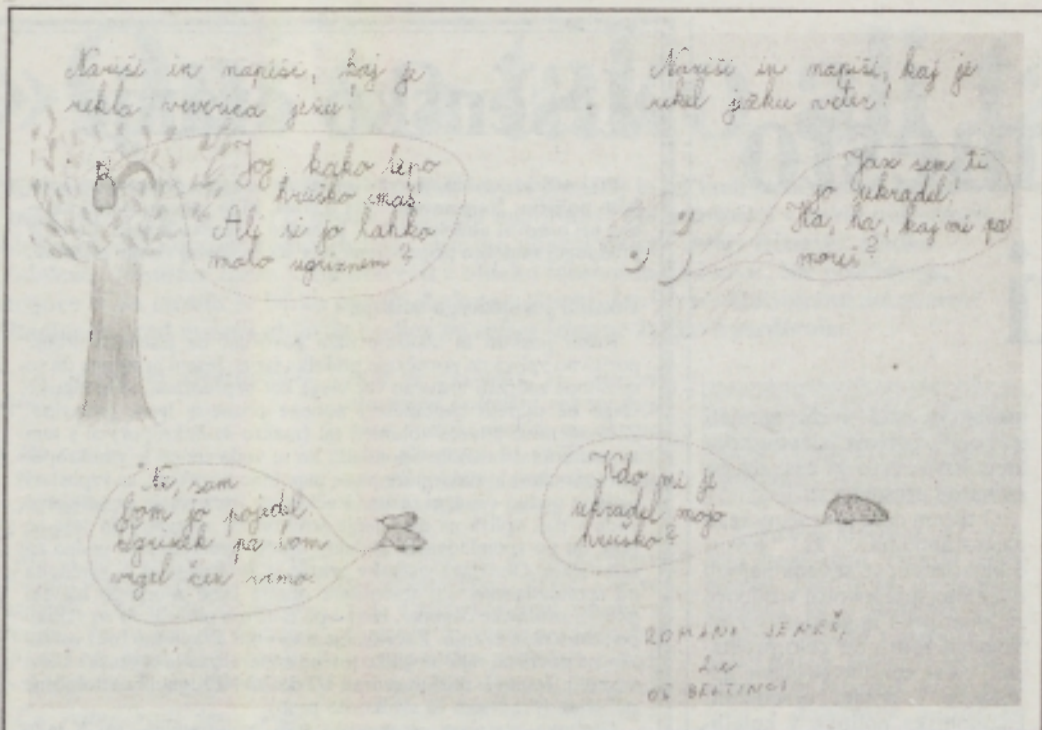 Nariši in napiši, kaj je
rekla veverica ježu!
Joj, kako lepo
hruško imaš.
Ali si jo lahko
malo ugriznem?
Ne, sam
bom jo pojedel.
Ogrizek pa bom
vrgel čez ramo.
Nariši in napiši, kaj je
rekel ježku veter!
Jaz sem ti
jo ukradel!
Ha, ha, kaj mi pa
moreš?
Kdo mi je
ukradel mojo
hruško?
ROMANA
OŠ BELTINCI